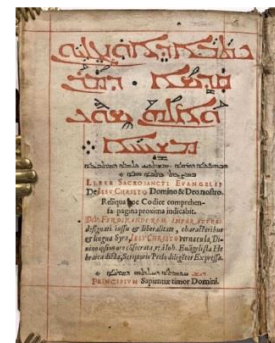 ܟܬܒܐ ܕܐܘܢܓܠܝܘܢ
ܩܕܝܫܐ ܕܡܪܢ
ܘܐܠܗܢ ܝܫܘܥ
ܡܫܝܚܐ
LIBER SACROSANCTI EVANGELII
De IESV CHRISTO Domino & Deo nostro.
Reliqua hoc Codice comprehen-
sa pagina proxima indicabit.
DIV. FERDINANDI ROM. IMPERATORIS
designati iussu & liberalitate, characteribus
& lingua Syra, IESV CHRISTO vernacula, Di-
uino ipsius ore cōsecrata et à Ioh. Euāgelista He-
braica dicta, Scriptorio Prelo diligēter Expressa.
PRINCIPIVM Sapientiæ timor Domini.